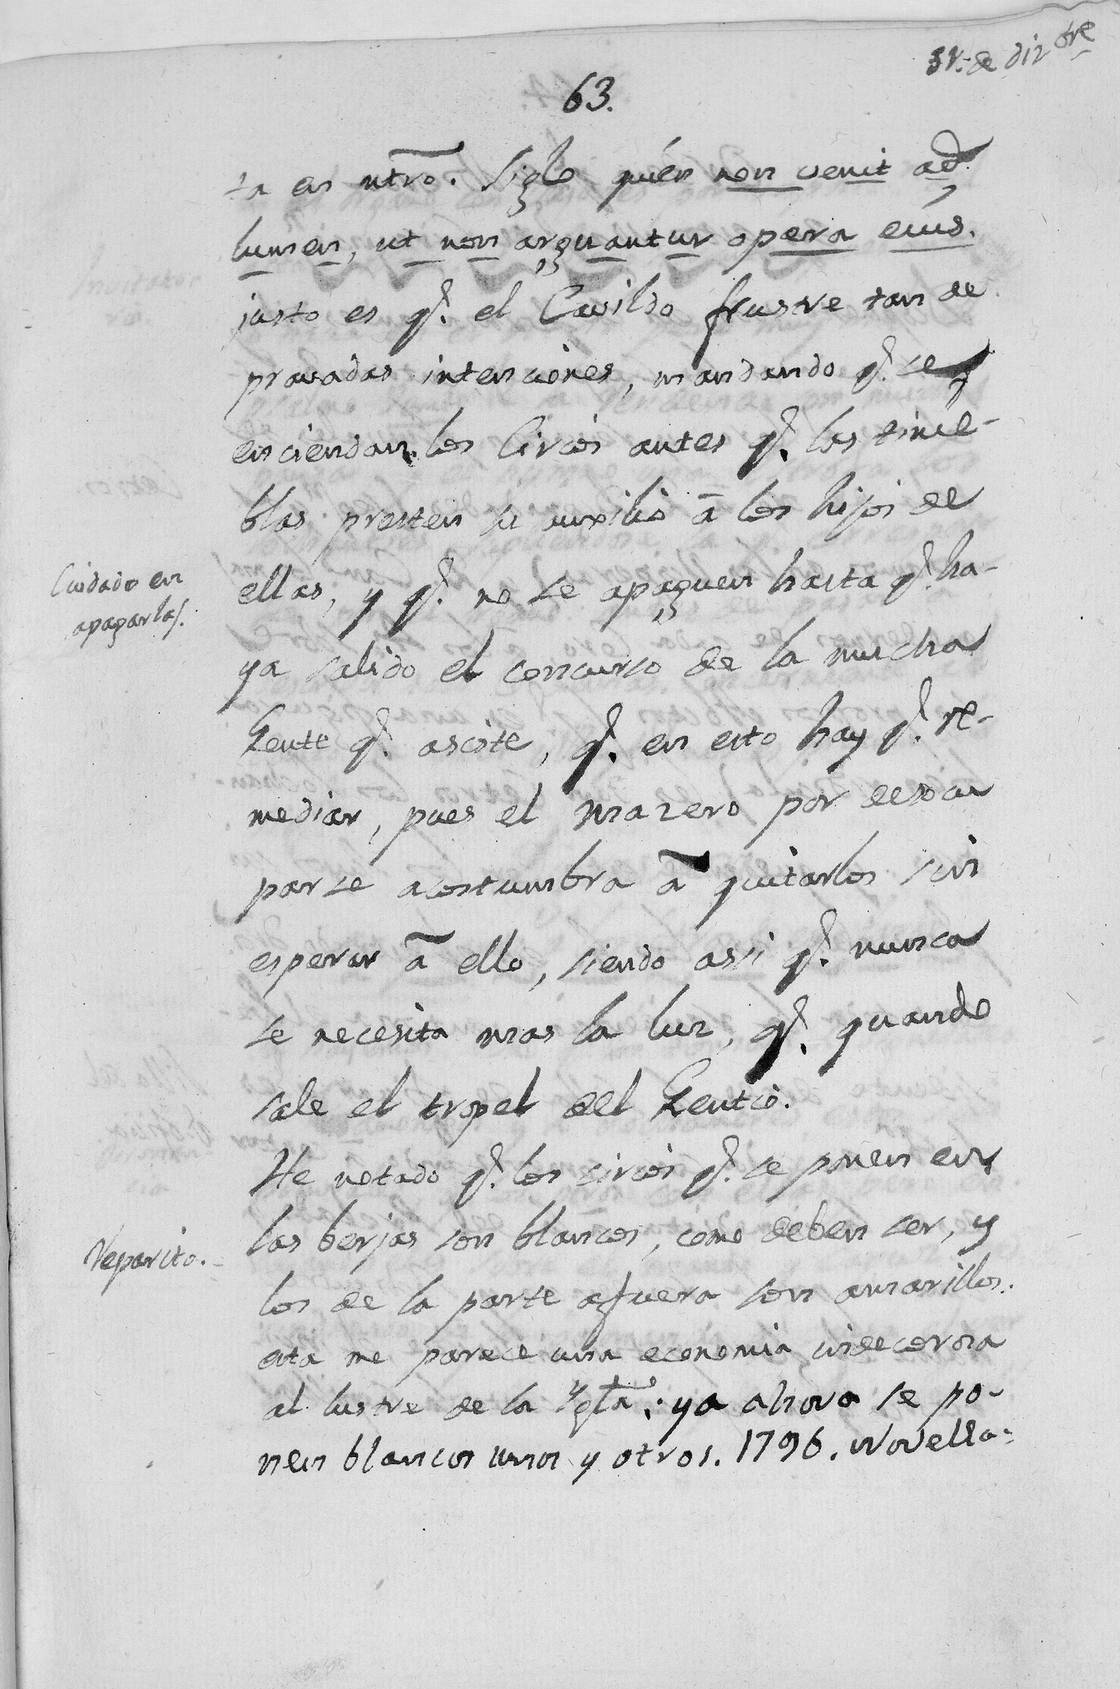 31. de dizbre
63.
ta en ntro. Siglo quien non venit ad
lumen, ut non arguantur opera eius.
justo es q. el Cavildo frustre tan de
pravadas intenciones, mandando q. se
enciendan los Cirios antes q. las tinie-
blas presten su auxilio â los hijos de
Cuidado en
apagarlas.
ellas, y q. no se apaguen hasta q. ha-
ya salido el concurso de la mucha
Gente q. asiste, q. en esto hay q. re-
mediar, pues el Mazero por desocu
parse acostumbra â quitarlos sin
esperar â ello, siendo assi q. nunca
se necesita mas la luz, q. quando
sale el tropel del Gentio.
He notado q. los cirios q. se ponen en
Reparito.
las berjas son blancos, como deben ser, y
los de la parte afuera son amarillos.
esta me parece una economia indecorosa
al lustre de la Ygla.: ya ahora se po-
nen blancos unos y otros. 1796. Novella=